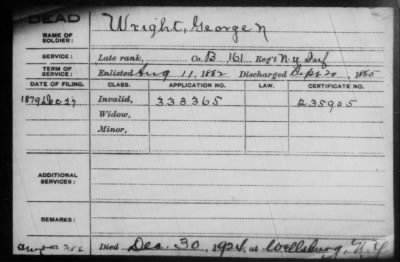 DEAD
NAME OF SOLDIER: Wright, George N
SERVICE: Late rank, Co. B, 161 Reg't N.Y. Inf
TERM OF SERVICE: Enlisted Aug 11, 1862 Discharged Sept 20, 1865
DATE OF FILING. CLASS. APPLICATION NO. LAW. CERTIFICATE NO.
1879 Dec 27 Invalid, 333365 235905
Widow,
Minor,
ADDITIONAL SERVICES:
REMARKS:
Died Dec. 30, 1924, at Wellsburg, N.Y.